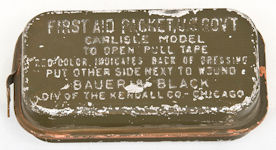 FIRST AID PACKET, U.S. GOV'T
CARLISLE MODEL
TO OPEN PULL TAPE
RED COLOR INDICATES BACK OF DRESSING
PUT OTHER SIDE NEXT TO WOUND
BAUER & BLACK
DIV OF THE KENDALL CO - CHICAGO